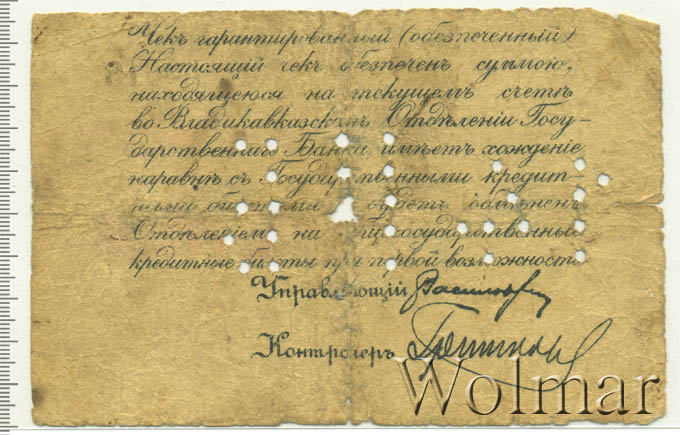 Чекъ гарантированный (обезпеченный)
Настоящій чекъ обезпеченъ суммою,
находящеюся на текущемъ счетѣ
во Владикавказскомъ Отдѣленіи Госу-
дарственнаго Банка, имѣетъ хожденіе
наравнѣ съ Государственными кредит-
ными билетами и будетъ обмѣненъ
Отдѣленіемъ на общегосударственные
кредитные билеты при первой возможности.
Управляющій
Контролеръ
Wolmar